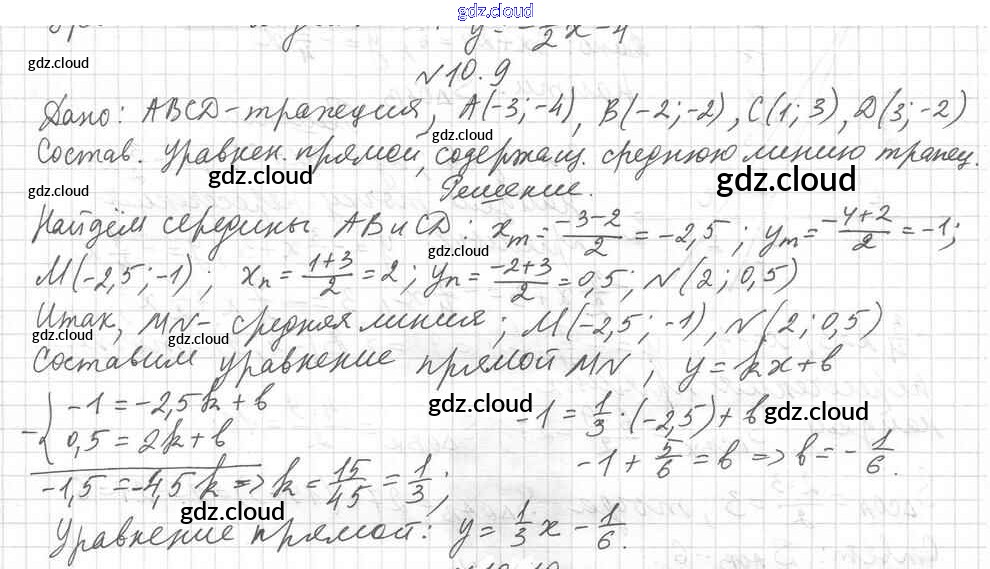 gdz.cloud
y = -1/2 x - 4
№10.9
gdz.cloud
Дано: ABCD - трапеция, A(-3; -4), B(-2; -2), C(1; 3), D(3; -2)
gdz.cloud
Состав. уравнен. прямой, содержащ. среднюю линию трапец.
gdz.cloud gdz.cloud gdz.cloud
Решение.
Найдём середины AB и CD: xm = (-3-2)/2 = -2,5; ym = (-4+2)/2 = -1;
gdz.cloud
M(-2,5; -1); xn = (1+3)/2 = 2; yn = (-2+3)/2 = 0,5; N(2; 0,5)
Итак, MN - средняя линия; M(-2,5; -1), N(2; 0,5)
gdz.cloud gdz.cloud
Составим уравнение прямой MN, y = kx + b
-1 = -2,5k + b
gdz.cloud
-1 = 1/3 · (-2,5) + b
gdz.cloud
0,5 = 2k + b
-1 + 5/6 = b => b = -1/6.
-1,5 = -4,5k => k = 15/45 = 1/3;
gdz.cloud
Уравнение прямой: y = 1/3 x - 1/6.